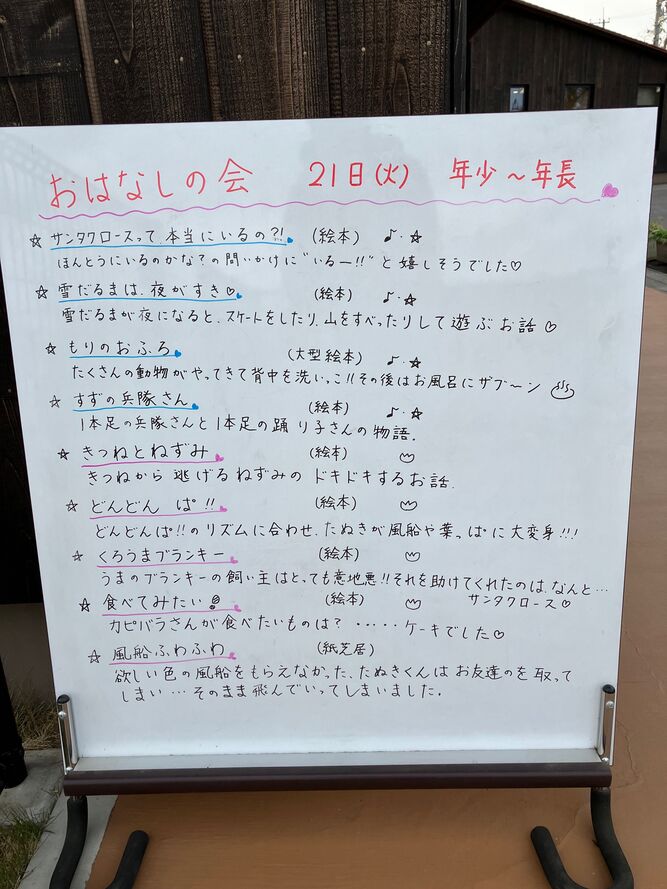 おはなしの会 21日(火) 年少～年長
☆ サンタクロースって、本当にいるの?! (絵本) ♪・☆
ほんとうにいるのかな?の問いかけに"いるー!!"と嬉しそうでした♡
☆ 雪だるまは、夜がすき♡ (絵本) ♪・☆
雪だるまが夜になると、スケートをしたり、山をすべったりして遊ぶお話♡
☆ もりのおふろ (大型絵本) ♪・☆
たくさんの動物がやってきて背中を洗いっこ!!その後はお風呂にザブ〜ン♨
☆ すずの兵隊さん (絵本) ♪・☆
1本足の兵隊さんと1本足の踊り子さんの物語.
☆ きつねとねずみ (絵本)
きつねから逃げるねずみのドキドキするお話.
☆ どんどん ぱ!! (絵本)
どんどんぱ!!のリズムに合わせ、たぬきが風船や葉っぱに大変身!!!
☆ くろうまブランキー (絵本)
うまのブランキーの飼い主はとっても意地悪!!それを助けてくれたのは、なんと…
サンタクロース♡
☆ 食べてみたい! (絵本)
カピバラさんが食べたいものは? ・・・・・ケーキでした♡
☆ 風船ふわふわ (紙芝居)
欲しい色の風船をもらえなかった、たぬきくんはお友達のを取って
しまい…そのまま飛んでいってしまいました。